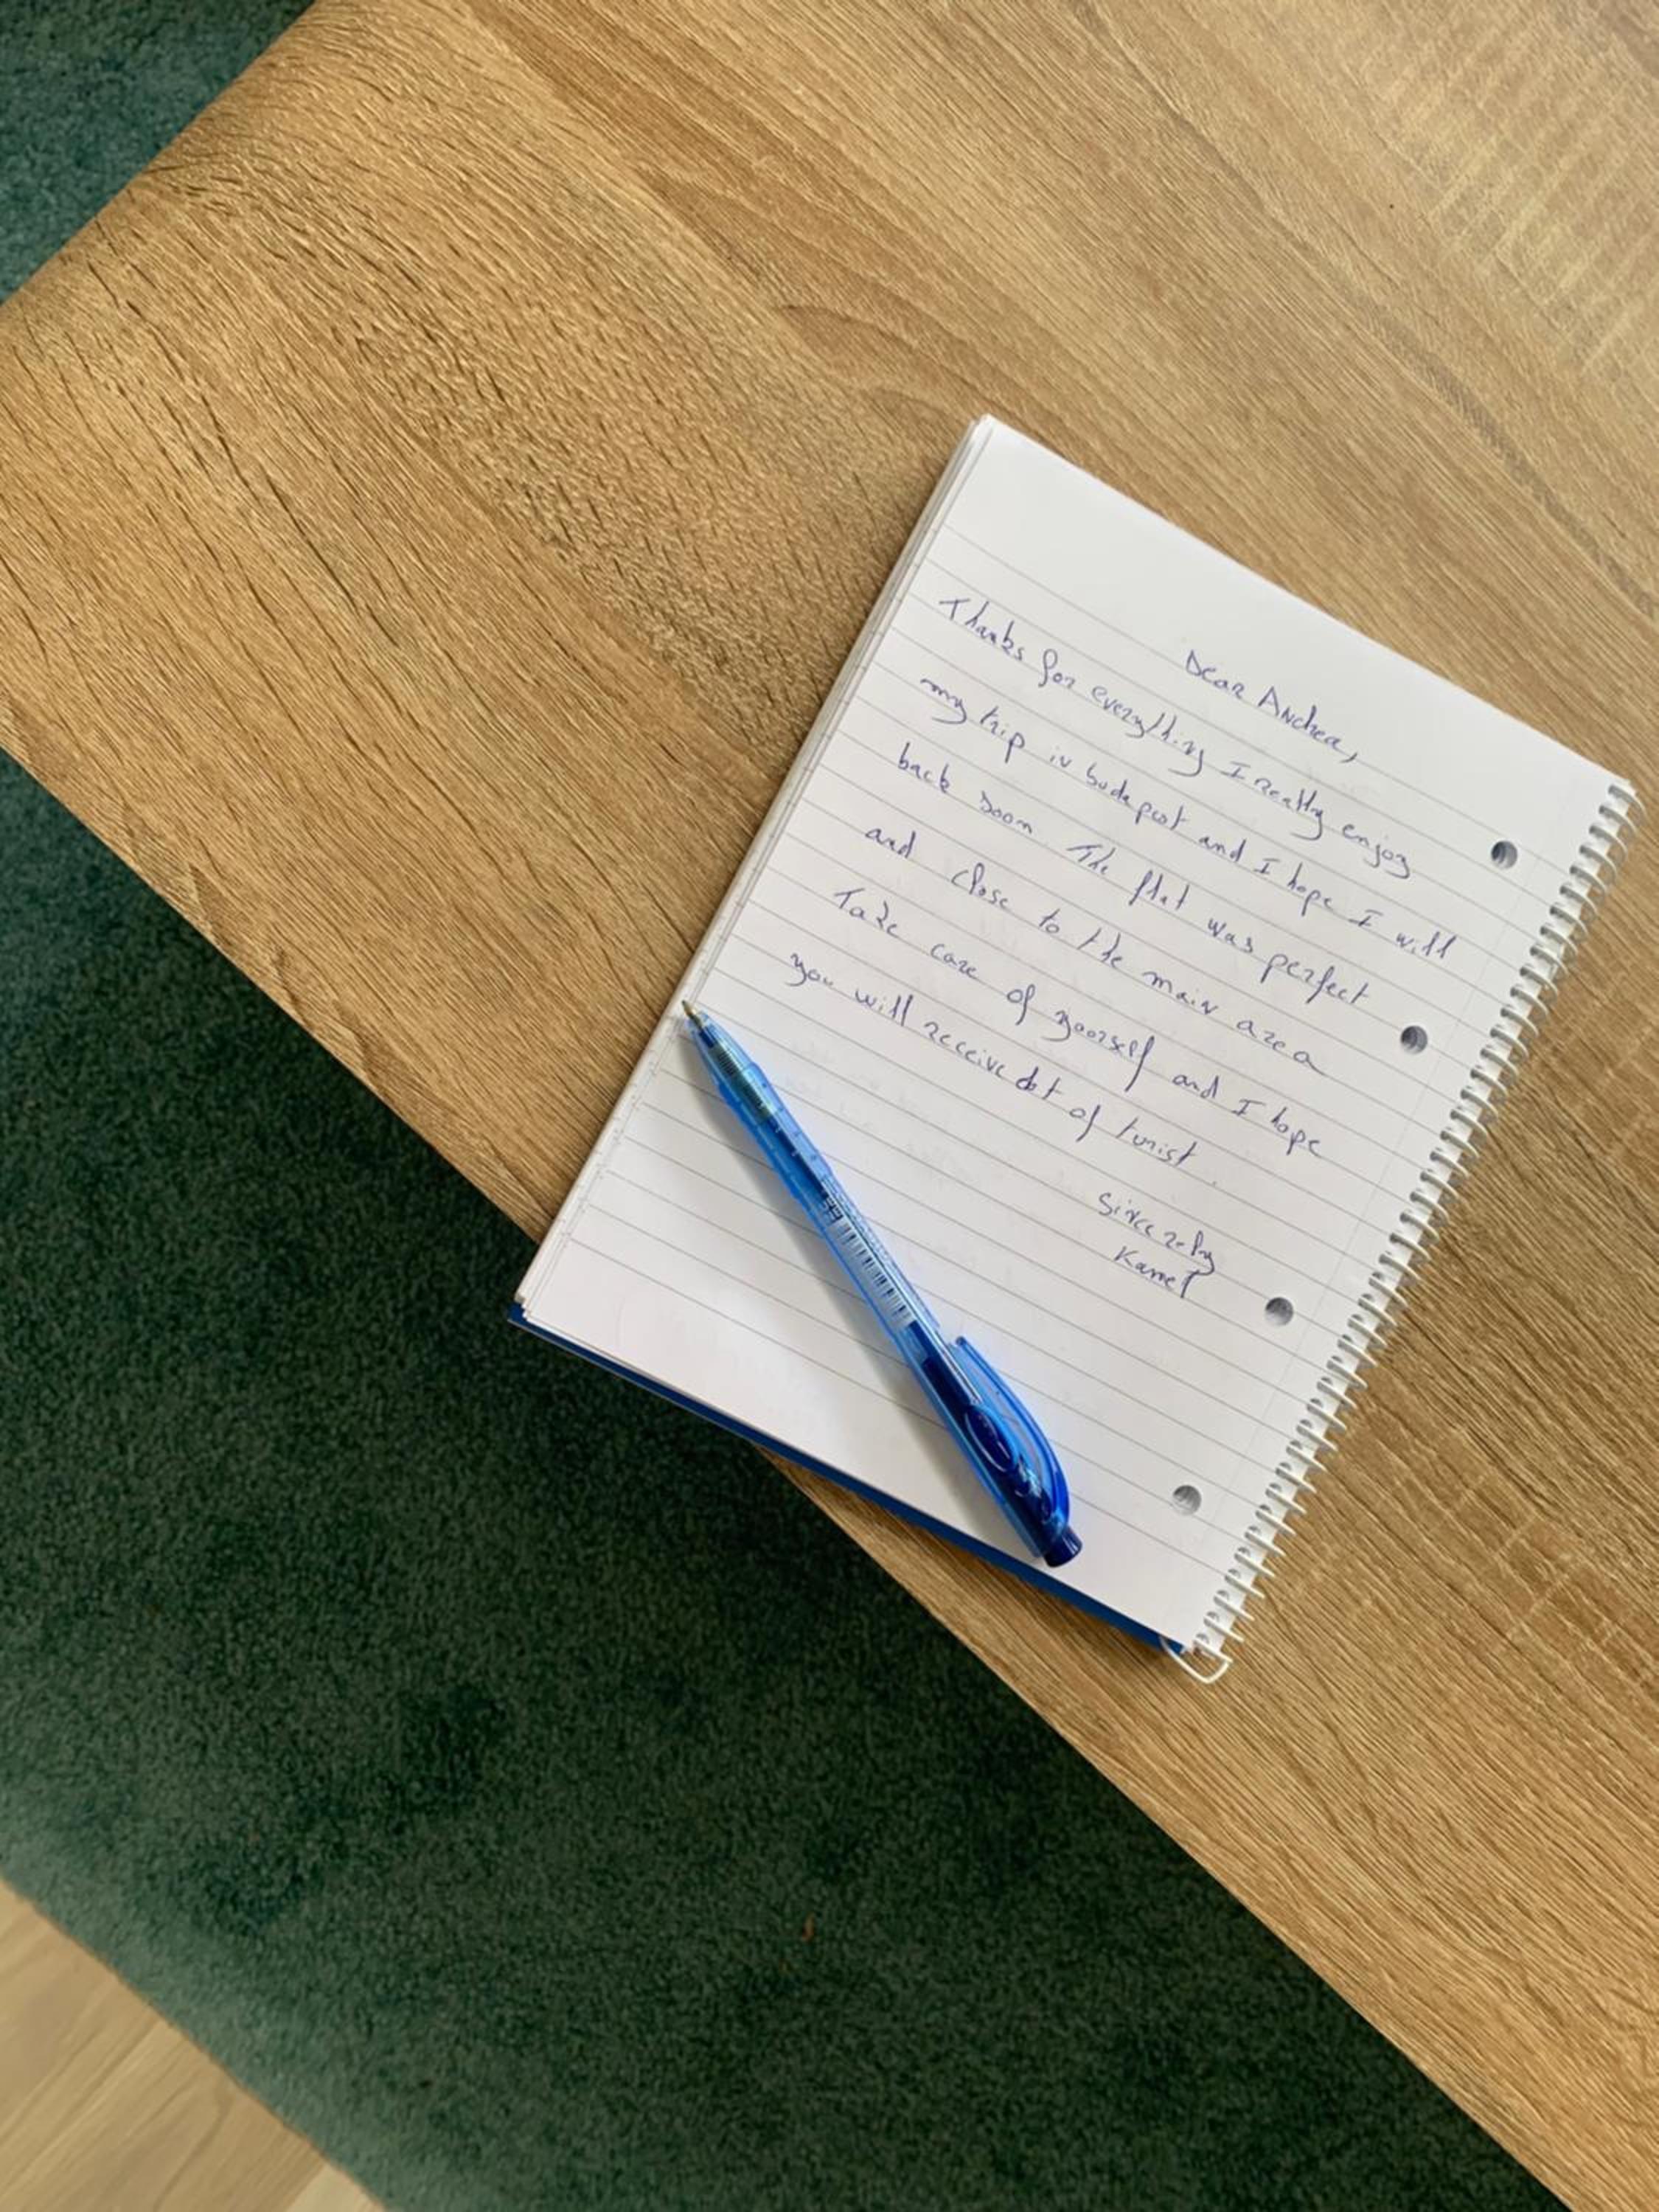 Dear Andrea,
Thanks for everything I really enjoy
my trip in budapest and I hope I will
back soon. The flat was perfect
and close to the main area
Take care of yoorself and I hope
you will receive lot of turist
Sincerely
Kamel